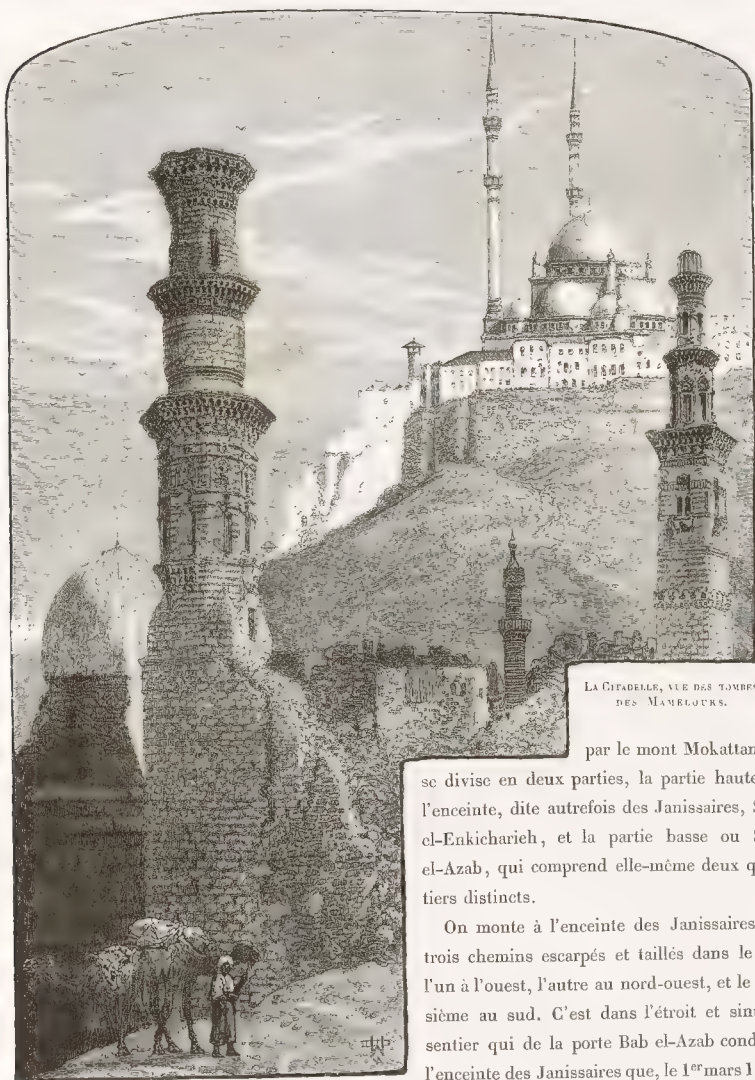 LA CITADELLE, VUE DES TOMBES
DES MAMELOUKS.
par le mont Mokattan
se divise en deux parties, la partie haute
l'enceinte, dite autrefois des Janissaires,
el-Enkicharieh, et la partie basse ou
el-Azab, qui comprend elle-même deux q
tiers distincts.
On monte à l'enceinte des Janissaires
trois chemins escarpés et taillés dans le
l'un à l'ouest, l'autre au nord-ouest, et le
sième au sud. C'est dans l'étroit et sin
sentier qui de la porte Bab el-Azab cond
l'enceinte des Janissaires que, le 1er mars 1